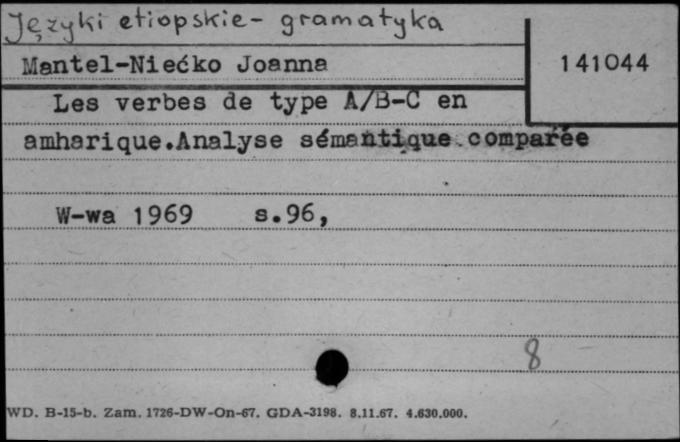 Języki etiopskie- gramatyka
Mantel-Niećko Joanna
141044
Les verbes de type A/B-C en
amharique.Analyse sémantique comparée
W-wa 1969 s.96,
8
WD. B-15-b. Zam. 1726-DW-On-67. GDA-3198. 8.11.67. 4.630.000.